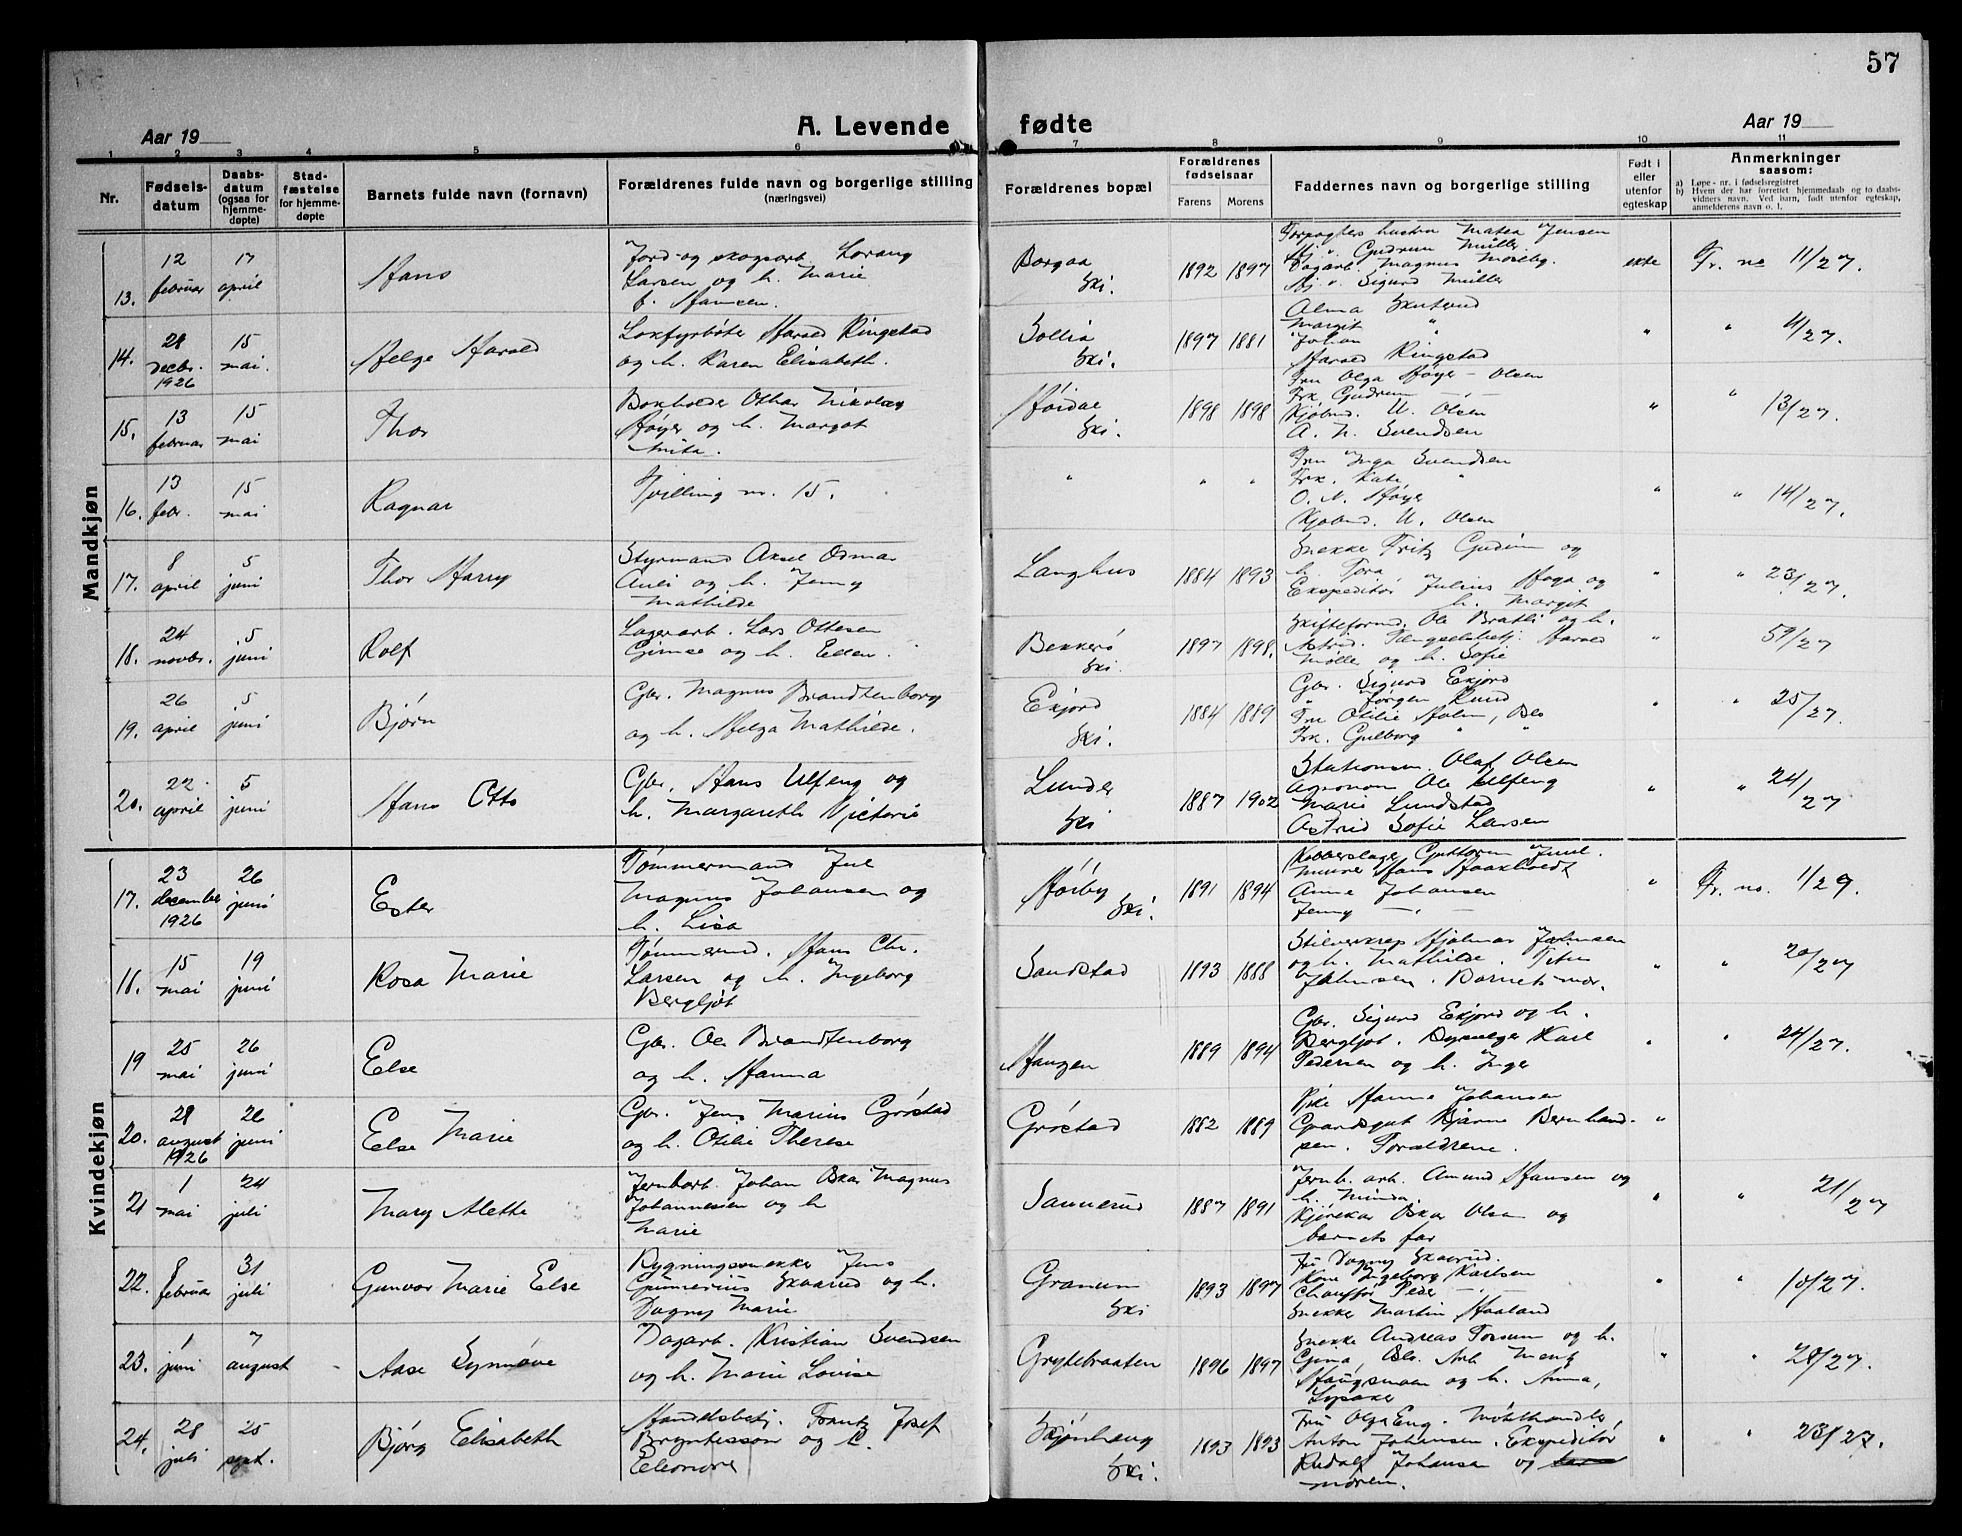 57
Aar 19
A. Levende
fødte
Aar 19
1 2 3 4 5 6 7 8 9 10 11
Nr.
Fødsels-
datum
Daabs-
datum
(ogsaa for
hjemme-
døpte)
Stad-
fæstelse
for hjemme-
døpte
Barnets fulde navn (fornavn)
Forældrenes fulde navn og borgerlige stilling
(næringsvei)
Forældrenes bopæl
Forældrenes
fødselsaar
Farens Morens
Faddernes navn og borgerlige stilling
Født i
eller
utenfor
egteskap
Anmerkninger
saasom:
a) Løpe-nr. i fødselsregistret
b) Hvem der har forrettet hjemmedaab og to daabs-
vidners navn. Ved barn, født utenfor egteskap,
anmelderens navn o. l.
Mandkjøn
13. 12 februar 17 april
Hans
Jord og skogsarb. Lorang
Larsen og h. Marie
f. Hansen.
Borgaa
Ski.
1892 1897
Forpagters hustru Matea Jensen
Hj. v. Gudrun Müller
Dagarb. Magnus
Hj. v. Sigurd Müller
ekte
Fr. no 11/27.
14. 28 decbr. 1926 15 mai.
Helge Harald
Lokfyrbøter Harald Ringstad
og h. Karen Elisabeth.
Sollia
Ski.
1897 1881
Alma Skuterud
Margit "
Johan "
Harald Ringstad
" " 4/27.
15. 13 februar 15 mai
Thor
Bokholder Othar Nikolay
Høyer og h. Margot
Anita.
Høidal
Ski.
1898 1898
Fru Olga Høyer-Olsen
Frk. Gudrun —"—
Kjøbmd. U. Olsen
A. N. Svendsen
" " 13/27.
16. 13 febr. 15 mai
Ragnar
Tvilling nr. 15.
" " "
Fru Inga Svendsen
Frk. Kate "
O. N. Høyer
Kjøbmd. U. Olsen
" " 14/27.
17. 8 april 5 juni
Thor Harry
Styrmand Aksel Osmar
og h. Jenny
Mathilde
Langhus
1884 1893
Snekker Fritz Gudim og
h. Tora
Ekspeditør Julius Haga og
h. Margit
" " 23/27.
18. 24 novbr. 5 juni
Rolf
Lagerarb. Lars Ottesen
Gimse og h. Ellen.
Ski.
1897 1898.
Skifteformd. Ole Bratli og h.
Astrid. Fængselsbetj. Harald
Møller og h. Sofie
" " 59/27
19. 26 april 5 juni
Bjørn
Gbr. Magnus Brandtenborg
og h. Helga Mathilde.
Ekjord
Ski.
1884 1889
Gbr. Sigurd Ekjord
" Jørgen Ruud
Fru Otilie Holm, Oslo
Frk. Gulborg " "
" " 25/27.
20. 22 april 5 juni
Hans Otto
Gbr. Hans Ulfeng og
h. Margareth Victoria
Lunder
Ski
1887 1902
Stationsm. Olaf Olsen
Agronom Ole Ulfeng
Marie Lundstad
Astrid Sofie Larsen
" " 24/27
Kvindekjøn
17. 23 december 1926 26 juni
Ester
Tømmermand Jul
Magnus Johansen og
h. Lisa
Høiby
Ski.
1891 1894
Kobberslager Guttorm Juul.
Murer Hans
Anna Johansen
Jenny —"—
" Fr. no. 1/29.
18. 15 mai 19 juni
Rosa Marie
Tømmermd. Hans Chr.
Larsen og h. Ingeborg
Bergljót
Sandstad
1893 1888
Hjalmar Johnsen
og h. Mathilde.
Johnsen. Barnets mor.
" " 20/27
19 25 mai 26 juni
Else
Gbr. Ole Brandtenborg
og h. Hanna
Haugen
1889 1894
Gbr. Sigurd Ekjord og h.
Bergljot. Karl
Pedersen og h. Inger
" " 24/27.
20. 28 august 1926 26 juni
Else Marie
Gbr. Jens Marius Grøstad
og h. Otilie Therese
Grøstad
1882 1889
Pike Hanna Johansen
Gaardsgut Bjarne Bernhard-
sen. Forældrene.
"
21 1 mai 24 juli
Mary Alette
Jernbarb. Johan Oskar Magnus
Johannessen og h
Marie
Sannerud
1887 1891
Jernb. arb. Amund Hansen og
h. Minda.
Kjørekar Oskar Olsen og
barnets far
" " 21/27
22. 8 februar 31 juli
Gunvor Marie Else
Bygningssnekker Jens
Gunnerius Skaarud og h.
Dagny Marie
Granum
Ski
1893 1897
Fru Dagny Skaarud.
Kone Ingeborg Karlsen
Chauffør Peder —"—
Snekker Martin Haaland
" " 10/27.
23. 1 juni 7 august
Aase Synnøve
Dagarb. Kristian Svendsen
og h. Marie Lovise
Grytebraaten
1896 1897
Snekker Andreas Forsum og h.
Gina, Oslo. Arb.
Haugsmoen og h. Anna,
Lysaker
" " 28/27.
24. 28 juli 25 sept.
Bjørg Elisabeth
Handelsbetj. Frantz Josef
Bryntesson og h.
Eleonore
Skjønhaug
Ski.
1893 1893
Fru Olga Eng. Møbelhandler
Anton Johansen. Ekspeditør
Rudolf Johansen og
moren.
" " 23/27.